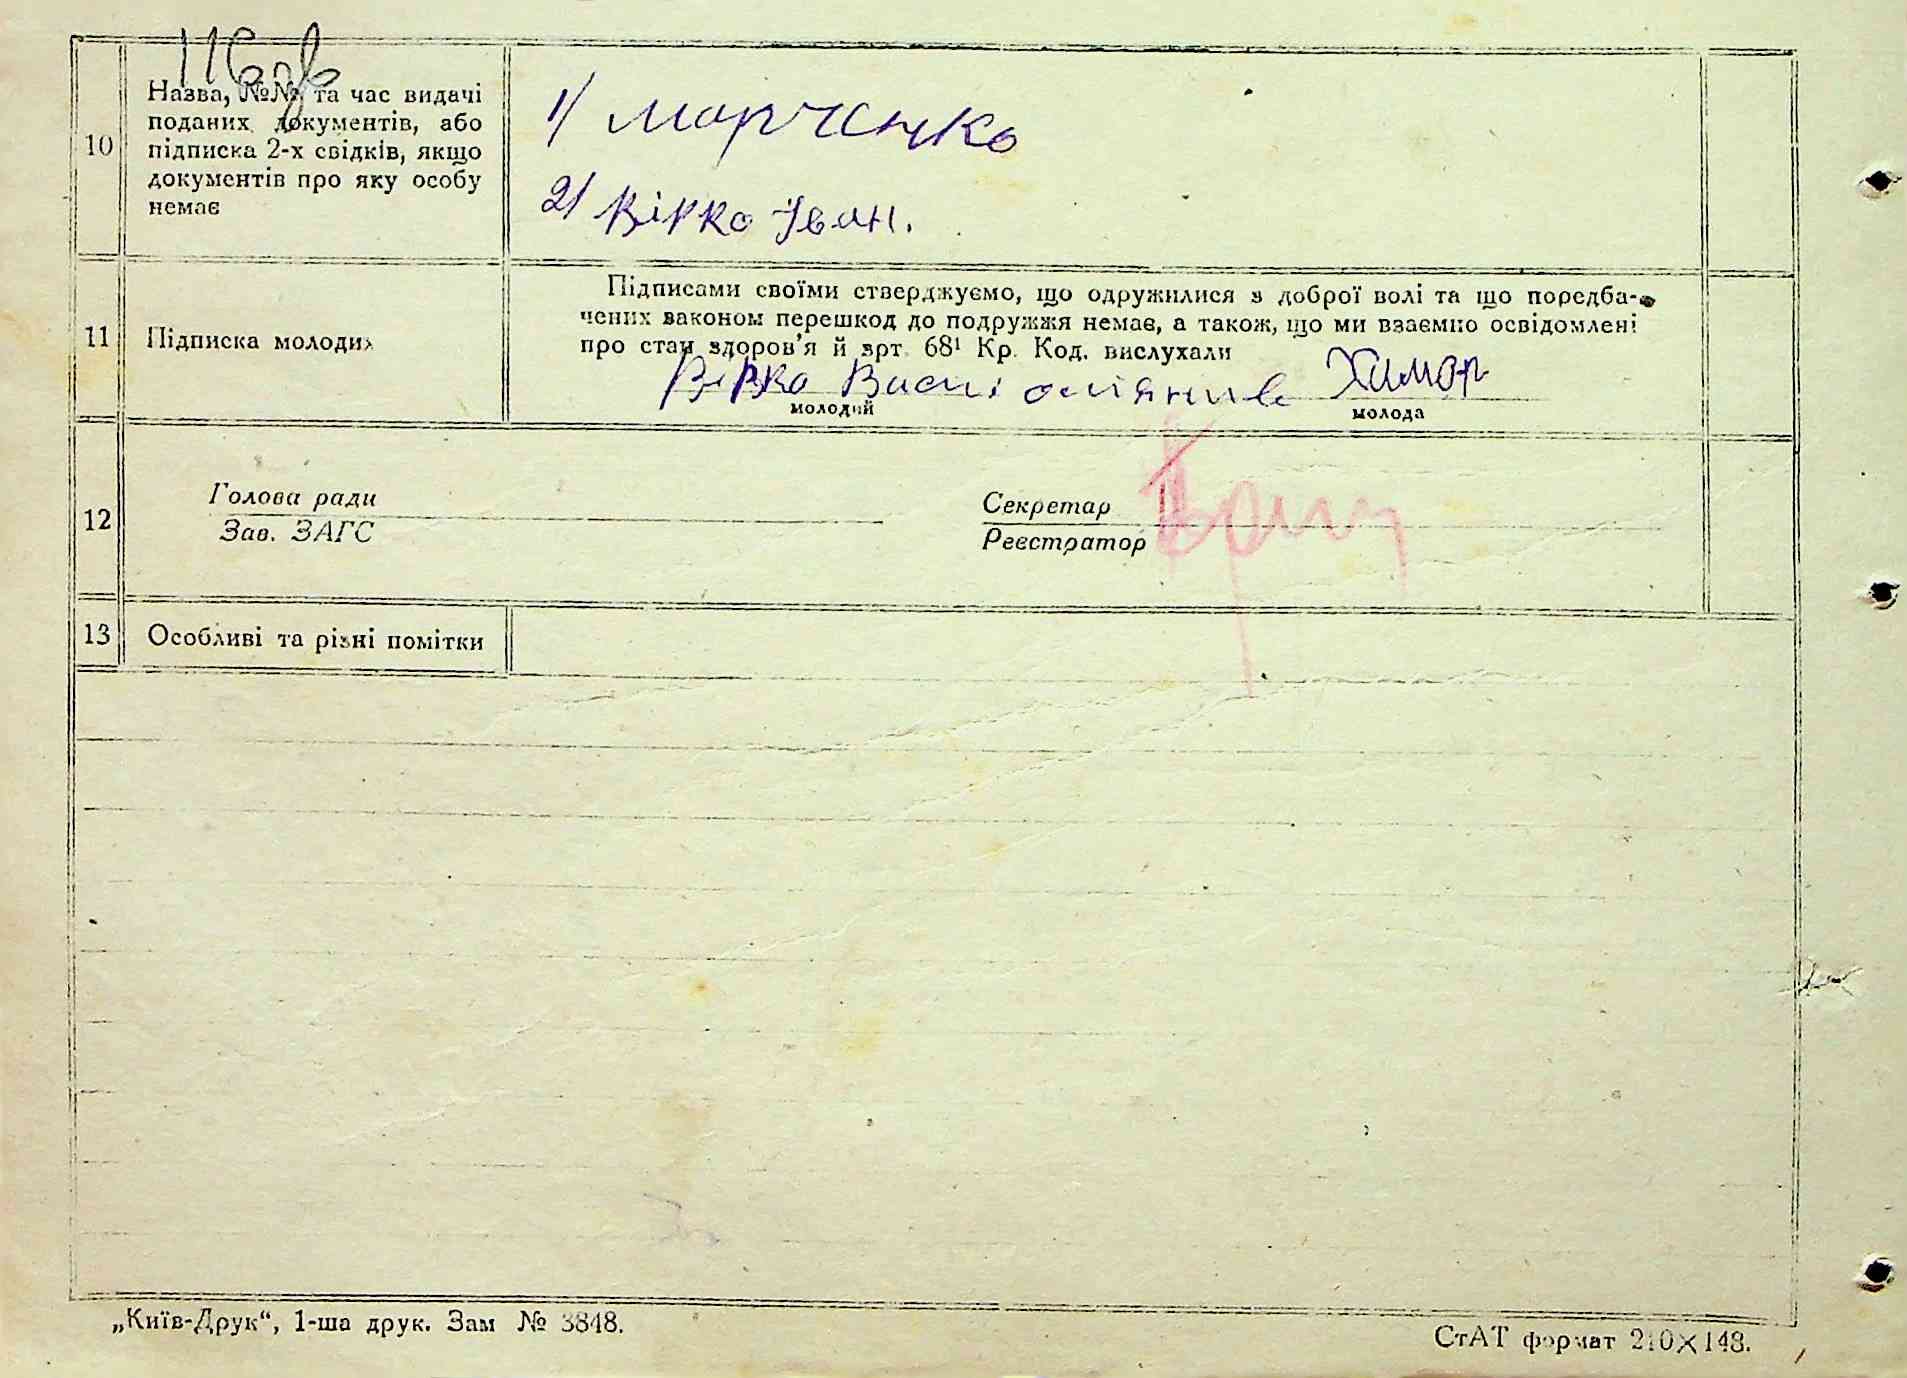 10
Назва, №№ та час видачі
поданих документів, або
підписка 2-х свідків, якщо
документів про яку особу
немає
1/ Марченко
2/ Вірко Іван.
11
Підписка молодих
Підписами своїми стверджуємо, що одружилися з доброї волі та що передба-
чених законом перешкод до подружжя немає, а також, що ми взаємно освідомлені
про стан здоров'я й арт. 68¹ Кр. Код. вислухали
Вірко Васи
молодий
молода
12
Голова ради
Зав. ЗАГС
Секретар
Реєстратор
13
Особливі та різні помітки
„Київ-Друк“, 1-ша друк. Зам № 3848.
СтАТ формат 210×148.